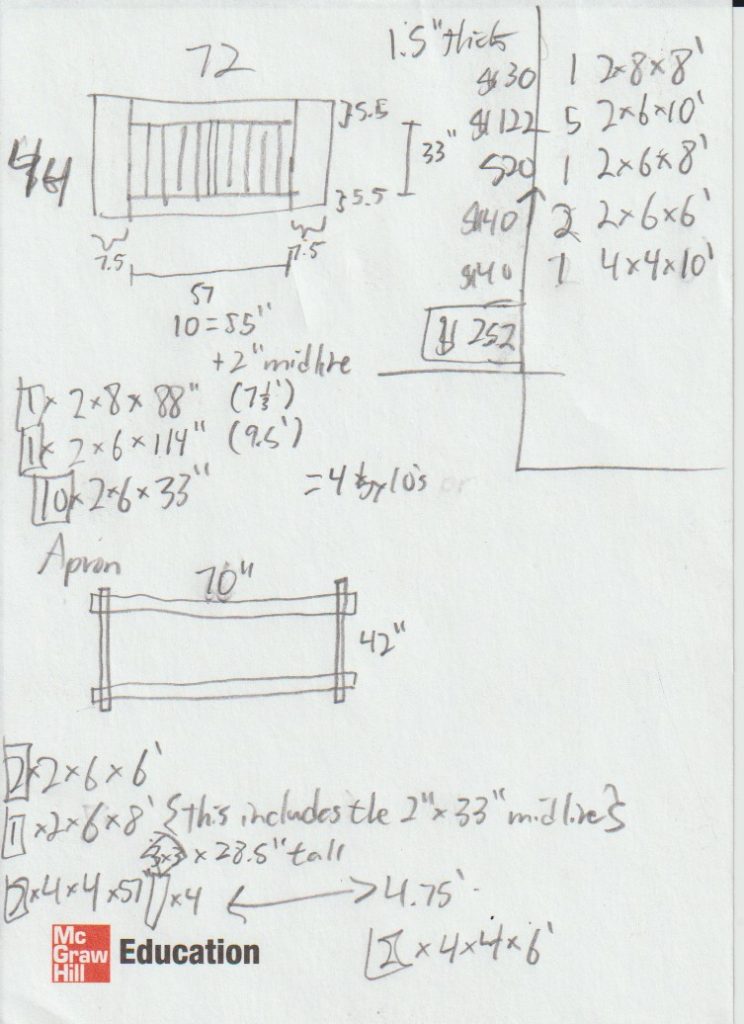 72
1.5" thick
$30 1 2×8×8'
$122 5 2×6×10'
$20 1 2×6×8'
$40 2 2×6×6'
$40 1 4×4×10'
$252
}5.5
33"
44
}5.5
7.5
7.5
57
10=55"
+2" midline
1× 2×8×88" (7⅓')
1× 2×6×114" (9.5')
10×2×6×33" =4 10's or
Apron
70"
42"
2×2×6×6'
1×2×6×8' {this includes the 2"×33" midline}
3×3 × 28.5" tall
2×4×4×57" ×4 4.75'
2×4×4×6'
Mc
Graw
Hill
Education